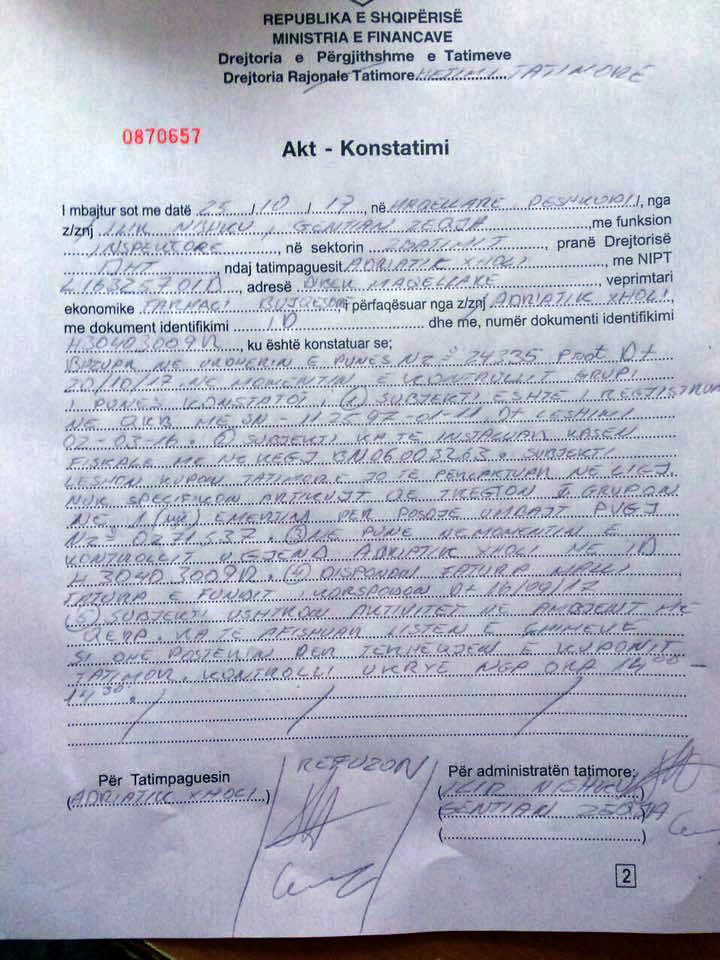 REPUBLIKA E SHQIPËRISË
MINISTRIA E FINANCAVE
Drejtoria e Përgjithshme e Tatimeve
Drejtoria Rajonale Tatimore HETIMI TATIMORE
0870657
Akt - Konstatimi
I mbajtur sot me datë 25 / 10 / 17, në MAQELLARE, nga
z/znj ILIR, GENTIAN ZEQJA, me funksion
INSPEKTORE, në sektorin, pranë Drejtorisë
ndaj tatimpaguesit ADRIATIK XHOLI, me NIPT
adresë DIBER MAQELLARE, veprimtari
ekonomike FARMACI BUJQESORE, i përfaqësuar nga z/znj ADRIATIK XHOLI,
me dokument identifikimi ID dhe me, numër dokumenti identifikimi
H30403009R, ku është konstatuar se;
BAZUAR NE URDHERIN E PUNES Nr = 24335 Prot Dt
20/10/17. NE MOMENTIN E KONTROLLIT GRUPI
I PUNES KONSTATOI. (1) SUBJEKTI ESHTE I REGJISTRUAR
NE QKR ME SN - Dt LESHIMI
02-03-16. (2) SUBJEKTI KA TE INSTALUAR KASEN
FISKALE ME NR REGJ. SUBJEKTI
LESHON KUPON TATIMORE JO TE PERCAKTUAR NE LIGJ.
NUK SPECIFIKON ARTIKUJT QE TREGTON I GRUPON
NE 1 (nje) EMERTIM PER POSHTE U MBAJT PVGJ
Nr = 0271537. (3) NE PUNE NE MOMENTIN E
KONTROLLIT U GJEND ADRIATIK XHOLI ME ID
H30403009R. (4) DISPONON FATURA MALLI
FATURA E FUNDIT I KORSPODON Dt 16/09/17
(5) SUBJEKTI USHTRON AKTIVITET ME AMBJENT ME
QERA. KA TE AFISHUAR LISTEN E CMIMEVE
SI DHE POSTERIN PER TERHEQJEN E KUPONIT
TATIMOR. KONTROLLI U KRYE NGA ORA 14,00 -
14,30.
Për Tatimpaguesin
(ADRIATIK XHOLI)
REFUZON
Për administratën tatimore;
(ILIR)
(GENTIAN ZEQJA)
(
)
2